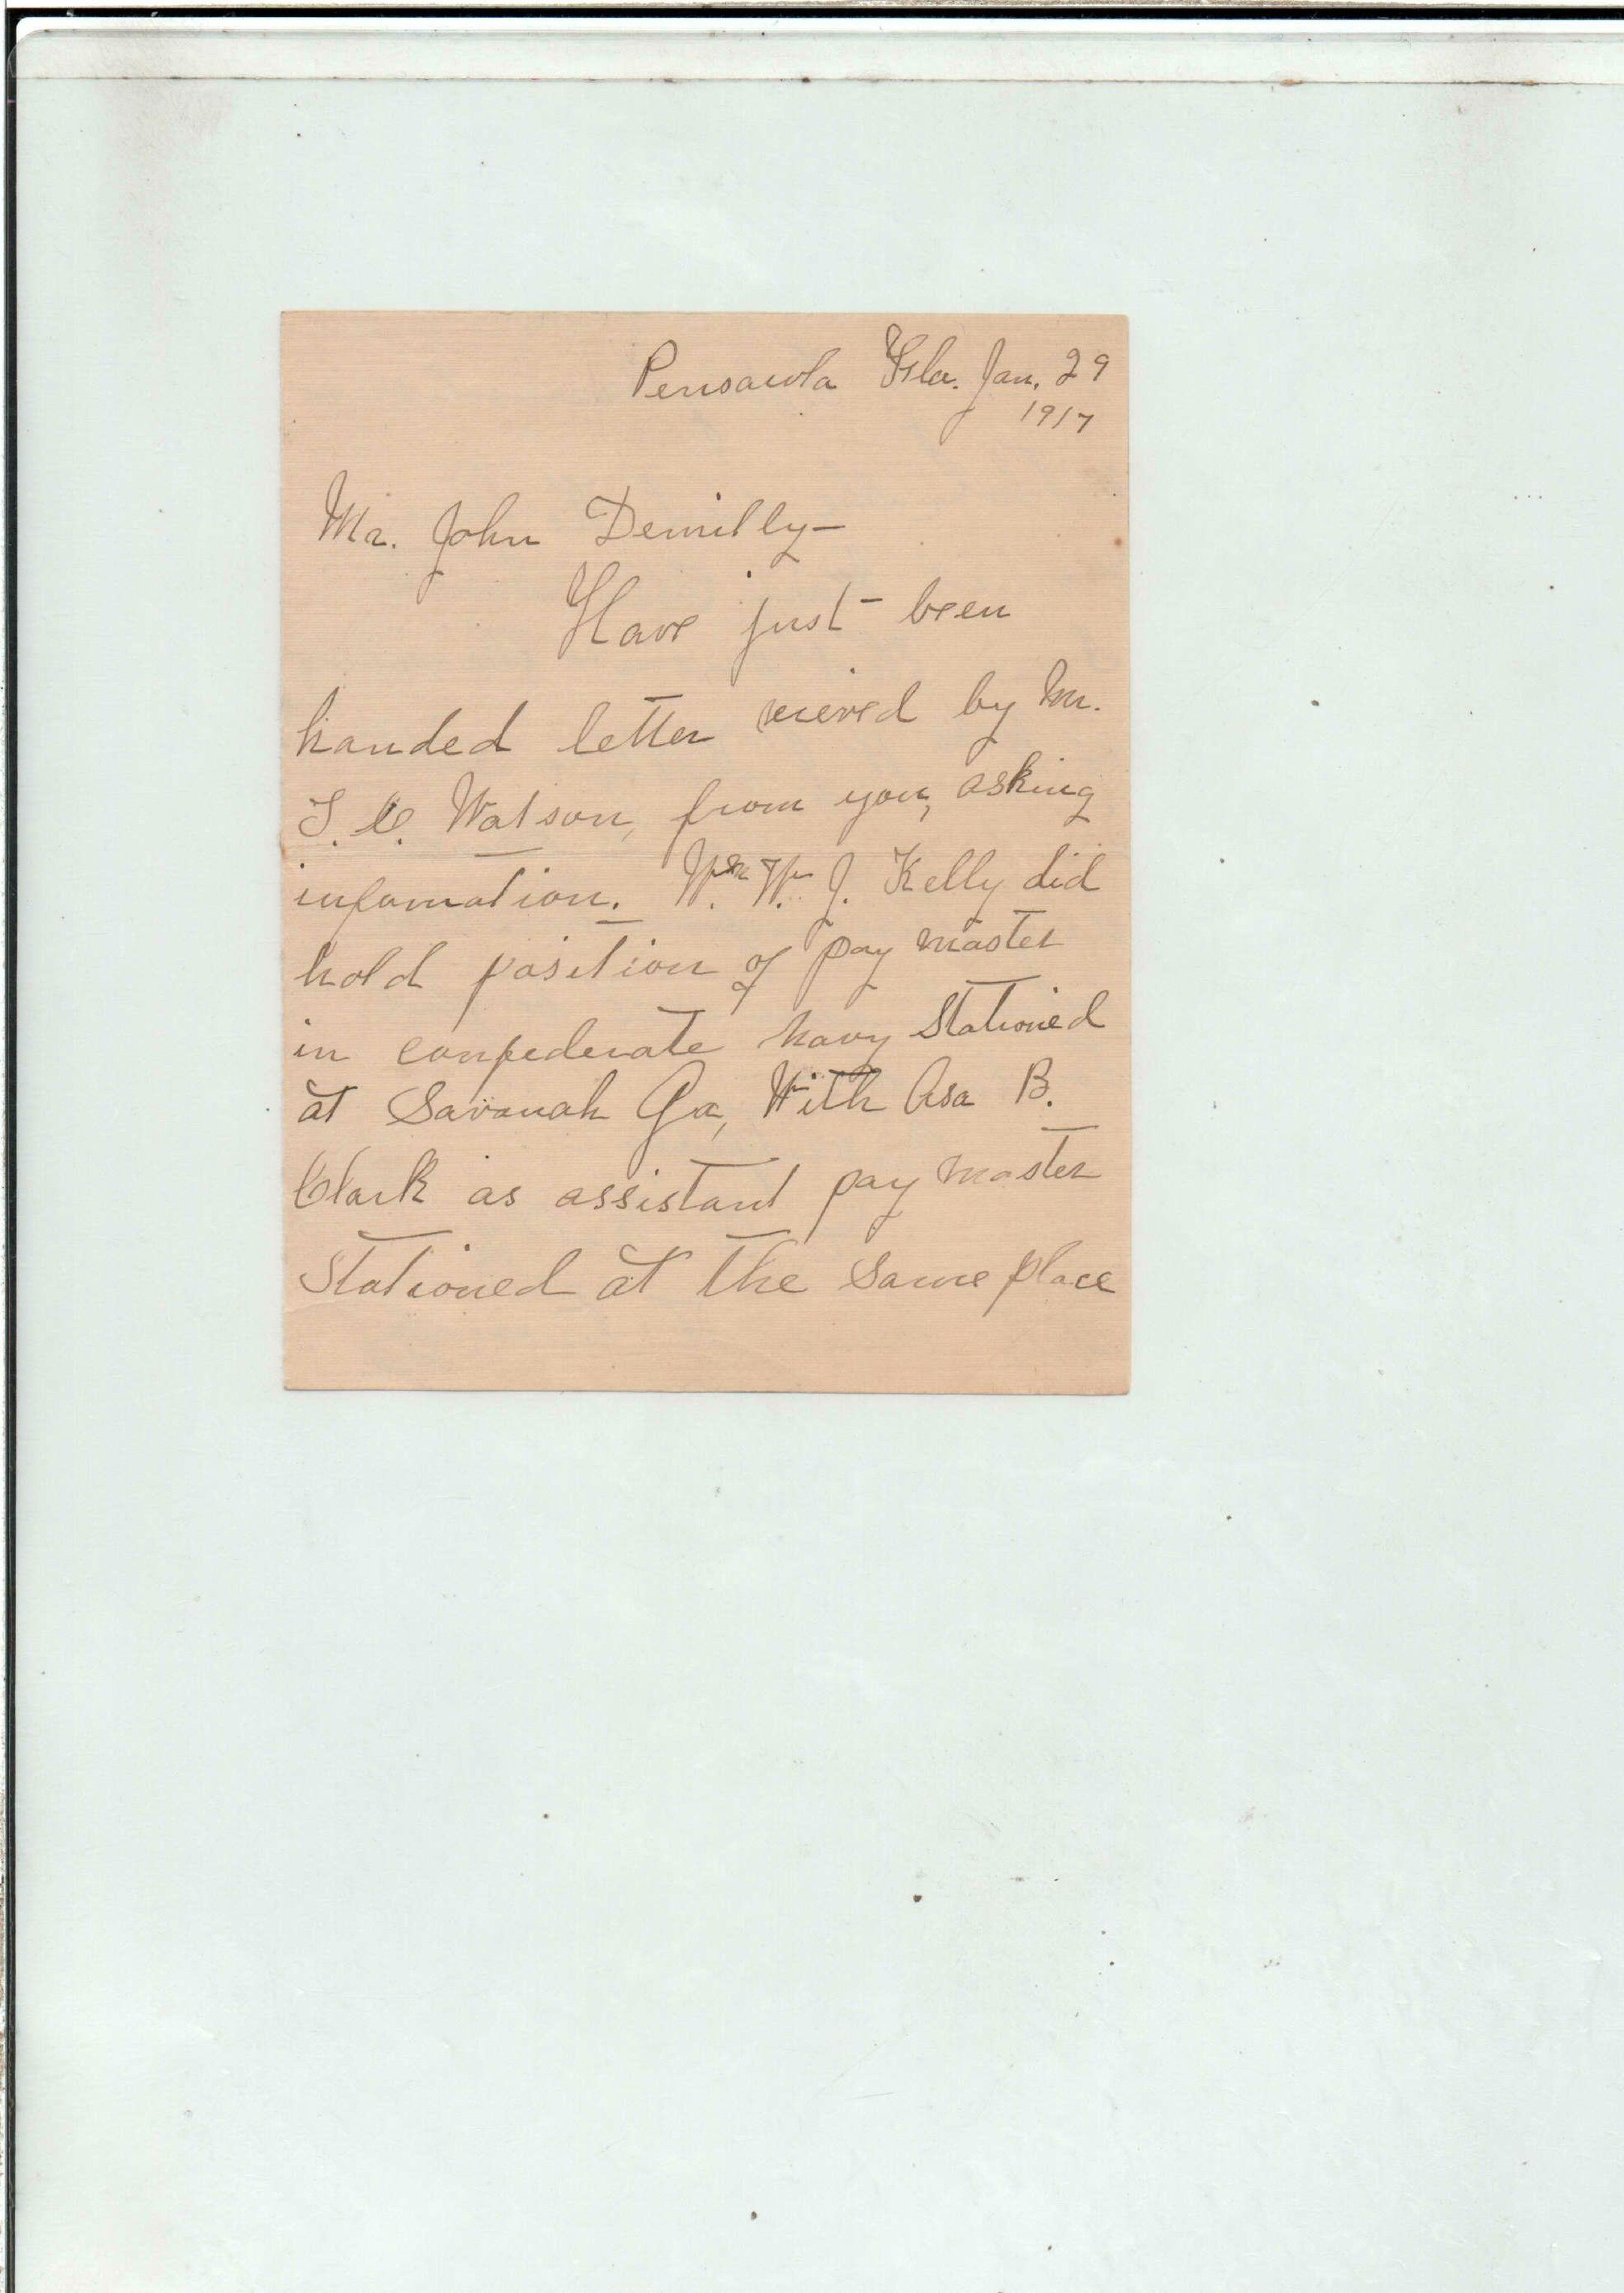 Pensacola Fla. Jan. 29
1917
Mr. John Demilly—
Have just been
handed letter recieved by Mr.
T. C. Watson, from you, asking
infomation. Wm W. J. Kelly did
hold position of pay master
in confederate navy stationed
at Savanah Ga, With Asa B.
Clark as assistant pay master
stationed at the same place